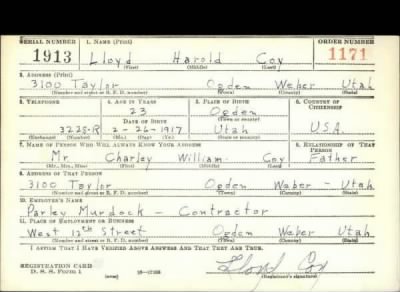 SERIAL NUMBER 1. NAME (Print) ORDER NUMBER
1913 Lloyd Harold Coy 1171
(First) (Middle) (Last)
2. ADDRESS (Print)
3100 Taylor Ogden Weber Utah
(Number and street or R. F. D. number) (Town) (County) (State)
3. TELEPHONE 4. AGE IN YEARS 5. PLACE OF BIRTH 6. COUNTRY OF CITIZENSHIP
23 Ogden
DATE OF BIRTH (Town or county)
3228-R 2-26-1917 Utah U.S.A.
(Exchange) (Number) (Mo.) (Day) (Yr.) (State or country)
7. NAME OF PERSON WHO WILL ALWAYS KNOW YOUR ADDRESS 8. RELATIONSHIP OF THAT PERSON
Mr. Charley William Coy Father
(Mr., Mrs., Miss) (First) (Middle) (Last)
9. ADDRESS OF THAT PERSON
3100 Taylor Ogden Weber - Utah
(Number and street or R. F. D. number) (Town) (County) (State)
10. EMPLOYER'S NAME
Parley Murdock - Contractor
11. PLACE OF EMPLOYMENT OR BUSINESS
West 12th Street Ogden Weber Utah
(Number and street or R. F. D. number) (Town) (County) (State)
I AFFIRM THAT I HAVE VERIFIED ABOVE ANSWERS AND THAT THEY ARE TRUE.
REGISTRATION CARD
D. S. S. Form 1 (over) Lloyd Coy
(Registrant's signature)